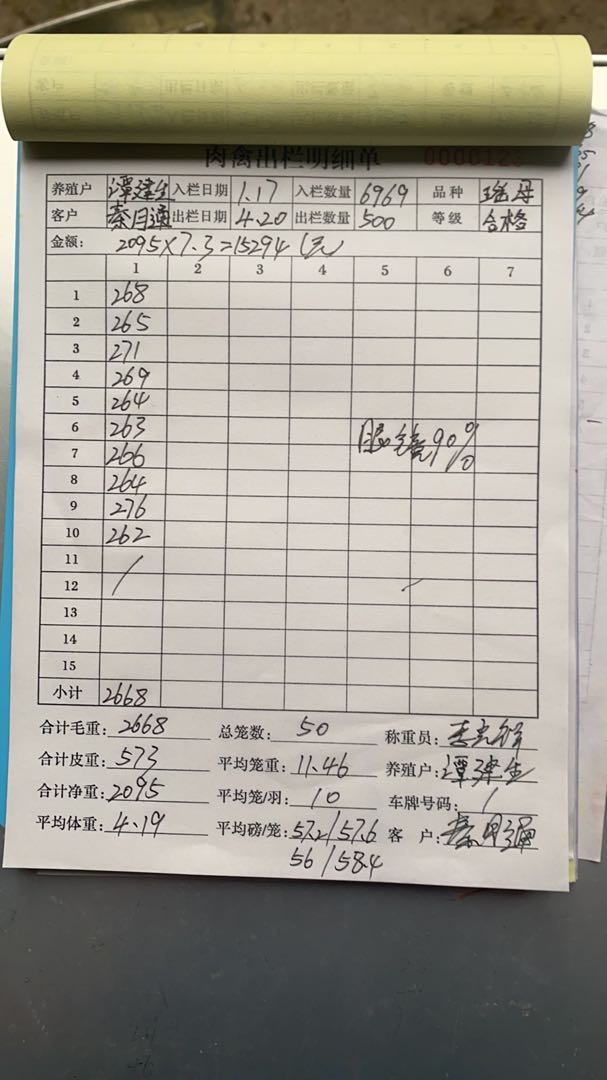 肉禽出栏明细单 0000123
养殖户 谭建生 入栏日期 1.17 入栏数量 6969 品种
客户 秦月通 出栏日期 4.20 出栏数量 500 等级 合格
金额: 2095×7.3=15294(元)
1 2 3 4 5 6 7
1 268
2 265
3 271
4 269
5 264
6 263
7 266
眼镜90%
8 264
9 276
10 262
11
12
13
14
15
小计 2668
合计毛重: 2668 总笼数: 50 称重员:
合计皮重: 573 平均笼重: 11.46 养殖户: 谭建生
合计净重: 2095 平均笼/羽: 10 车牌号码: /
平均体重: 4.19 平均磅/笼: 57.2/57.6 客 户: 秦月通
56/58.4